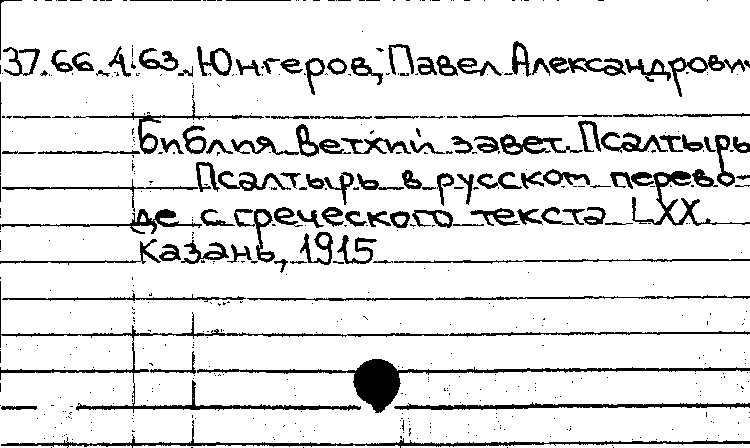 37.66.4.63. Юнгеров, Павел Александрович
Библия Ветхий завет. Псалтырь
Псалтырь в русском перево-
де с греческого текста LXX.
Казань, 1915